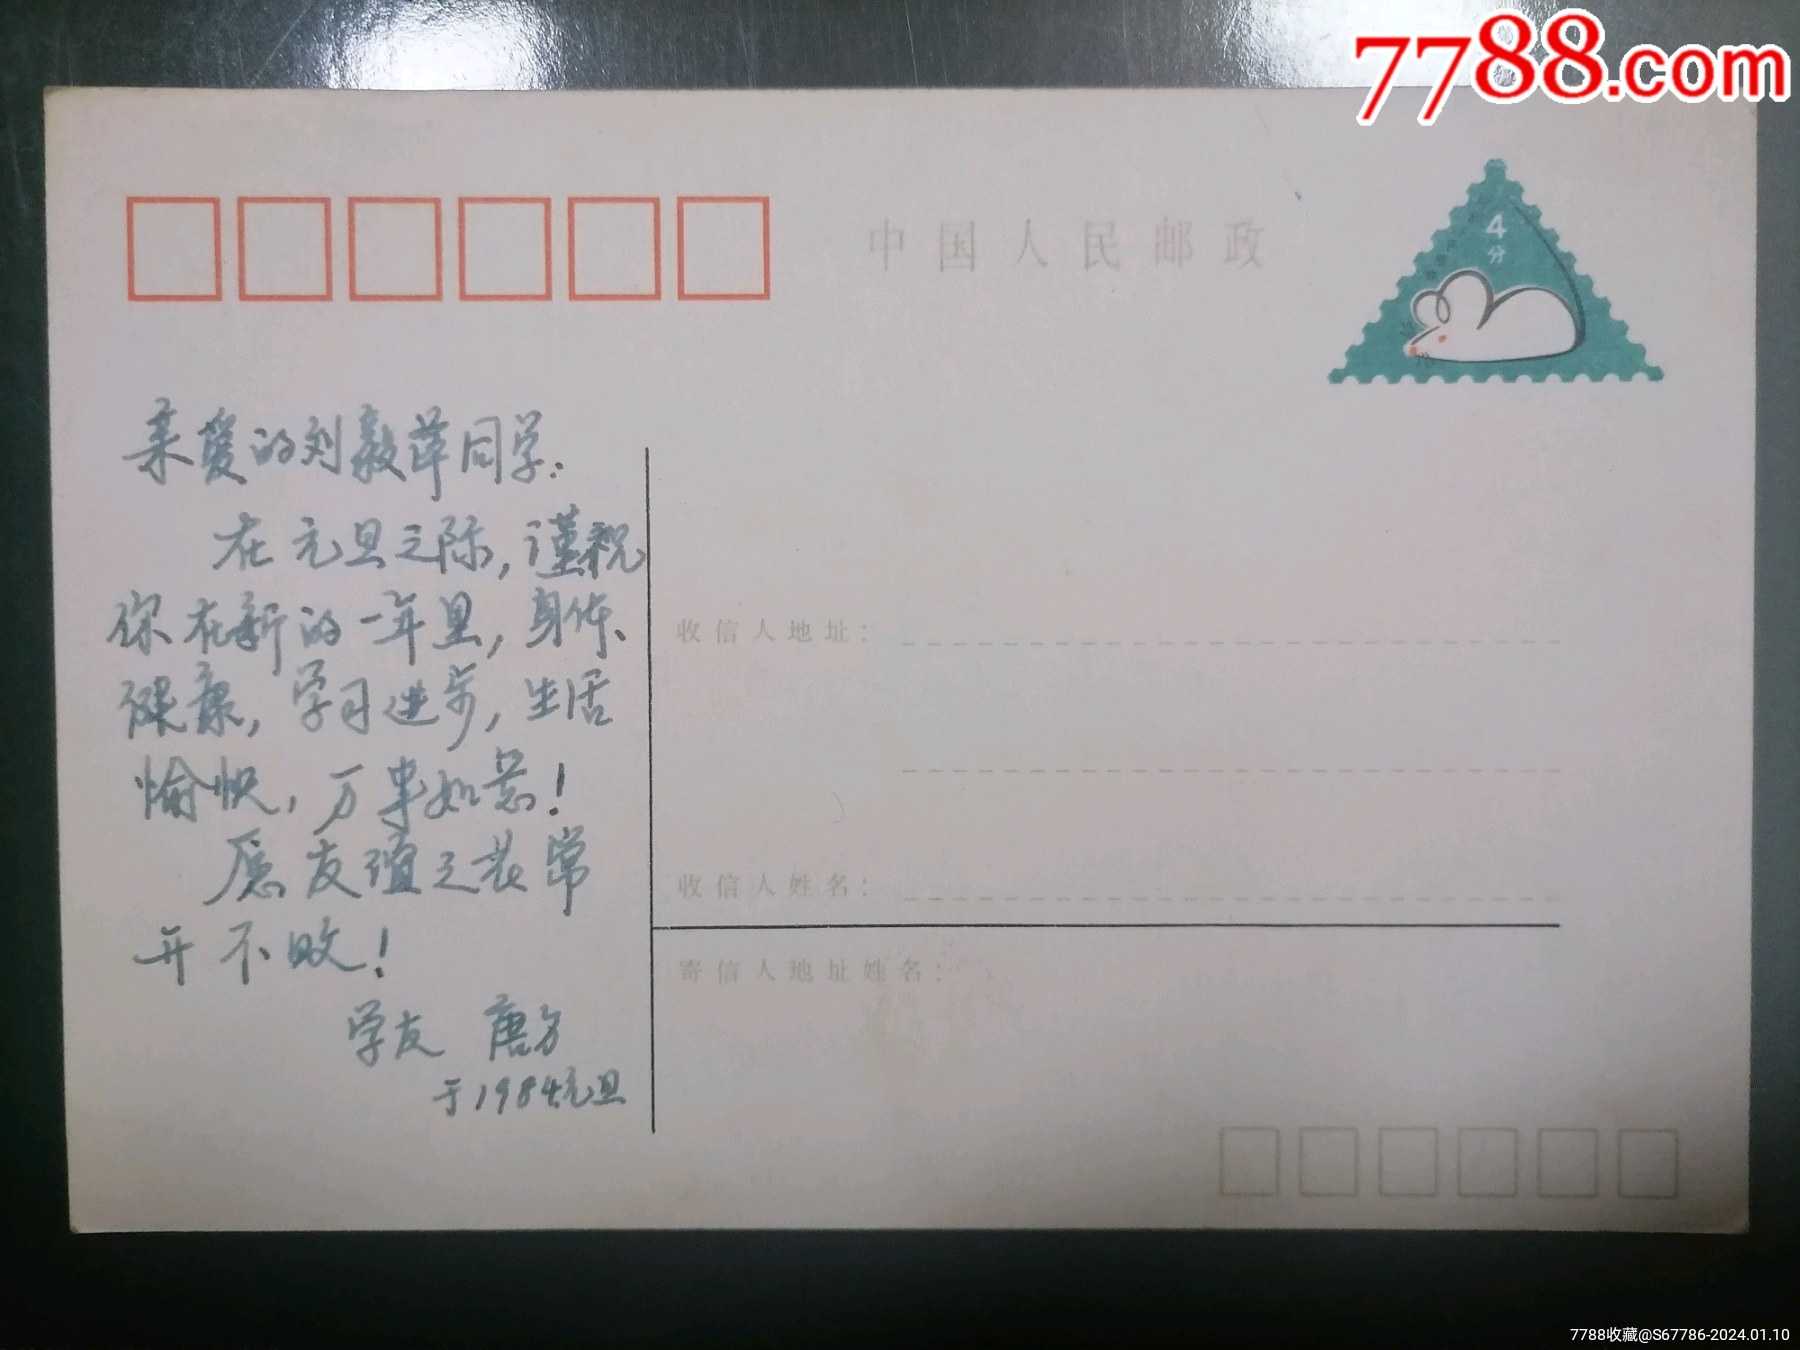 7788.com
中国人民邮政
4
分
亲爱的刘毅萍同学:
在元旦之际,谨祝
你在新的一年里,身体、
健康,学习进步,生活
愉快,万事如意!
愿友谊之花常
开不败!
学友 唐方
于1984元旦
收信人地址:
收信人姓名:
寄信人地址姓名:
7788收藏@S67786-2024.01.10